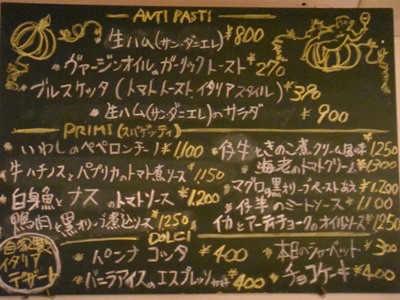 ANTI PASTI
生ハム(サン・ダニエレ) ¥800
ヴァージンオイルのガーリックトースト ¥270
ブルスケッタ(トマトトースト、イタリアスタイル) ¥390
生ハム(サンダニエレ)のサラダ ¥900
PRIMI (スパゲッティ)
いわしのペペロンチーノ ¥1,100
牛ハチノスとパプリカのトマト煮ソース 1150
白身魚とナスのトマトソース ¥1,200
鴨肉と黒オリーブ煮込ソース ¥1250
仔牛ときのこ煮クリーム風味 ¥1250
海老のトマトクリーム ¥1300
マグロの黒オリーブペーストあえ ¥1,200
仔羊のミートソース ¥1100
イカとアーティチョークのオイルソース ¥1250
DOLCI
自家製イタリアデザート
パンナコッタ ¥400
バニラアイスのエスプレッソかけ ¥400
本日のシャーベット ¥300
チョコケーキ ¥400